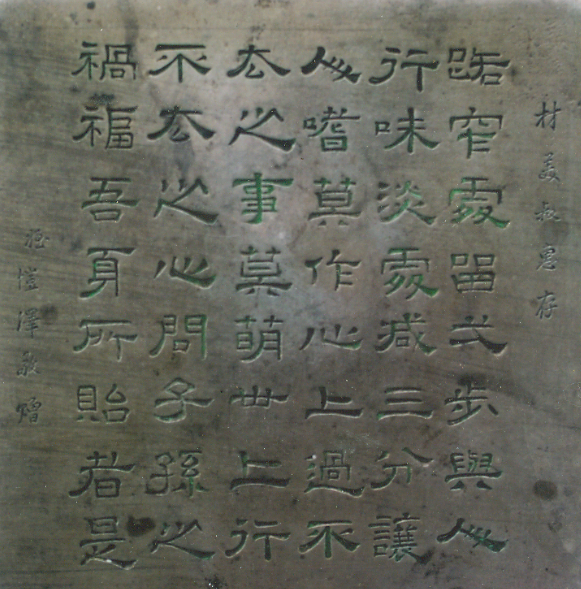 材美叔惠存
路窄處留弌步與人
行味淡處减三分讓
人嗜莫作心上過不
去之事莫萌世上行
不去之心問子孫之
禍福吾身所貽者是
愷澤敬贈